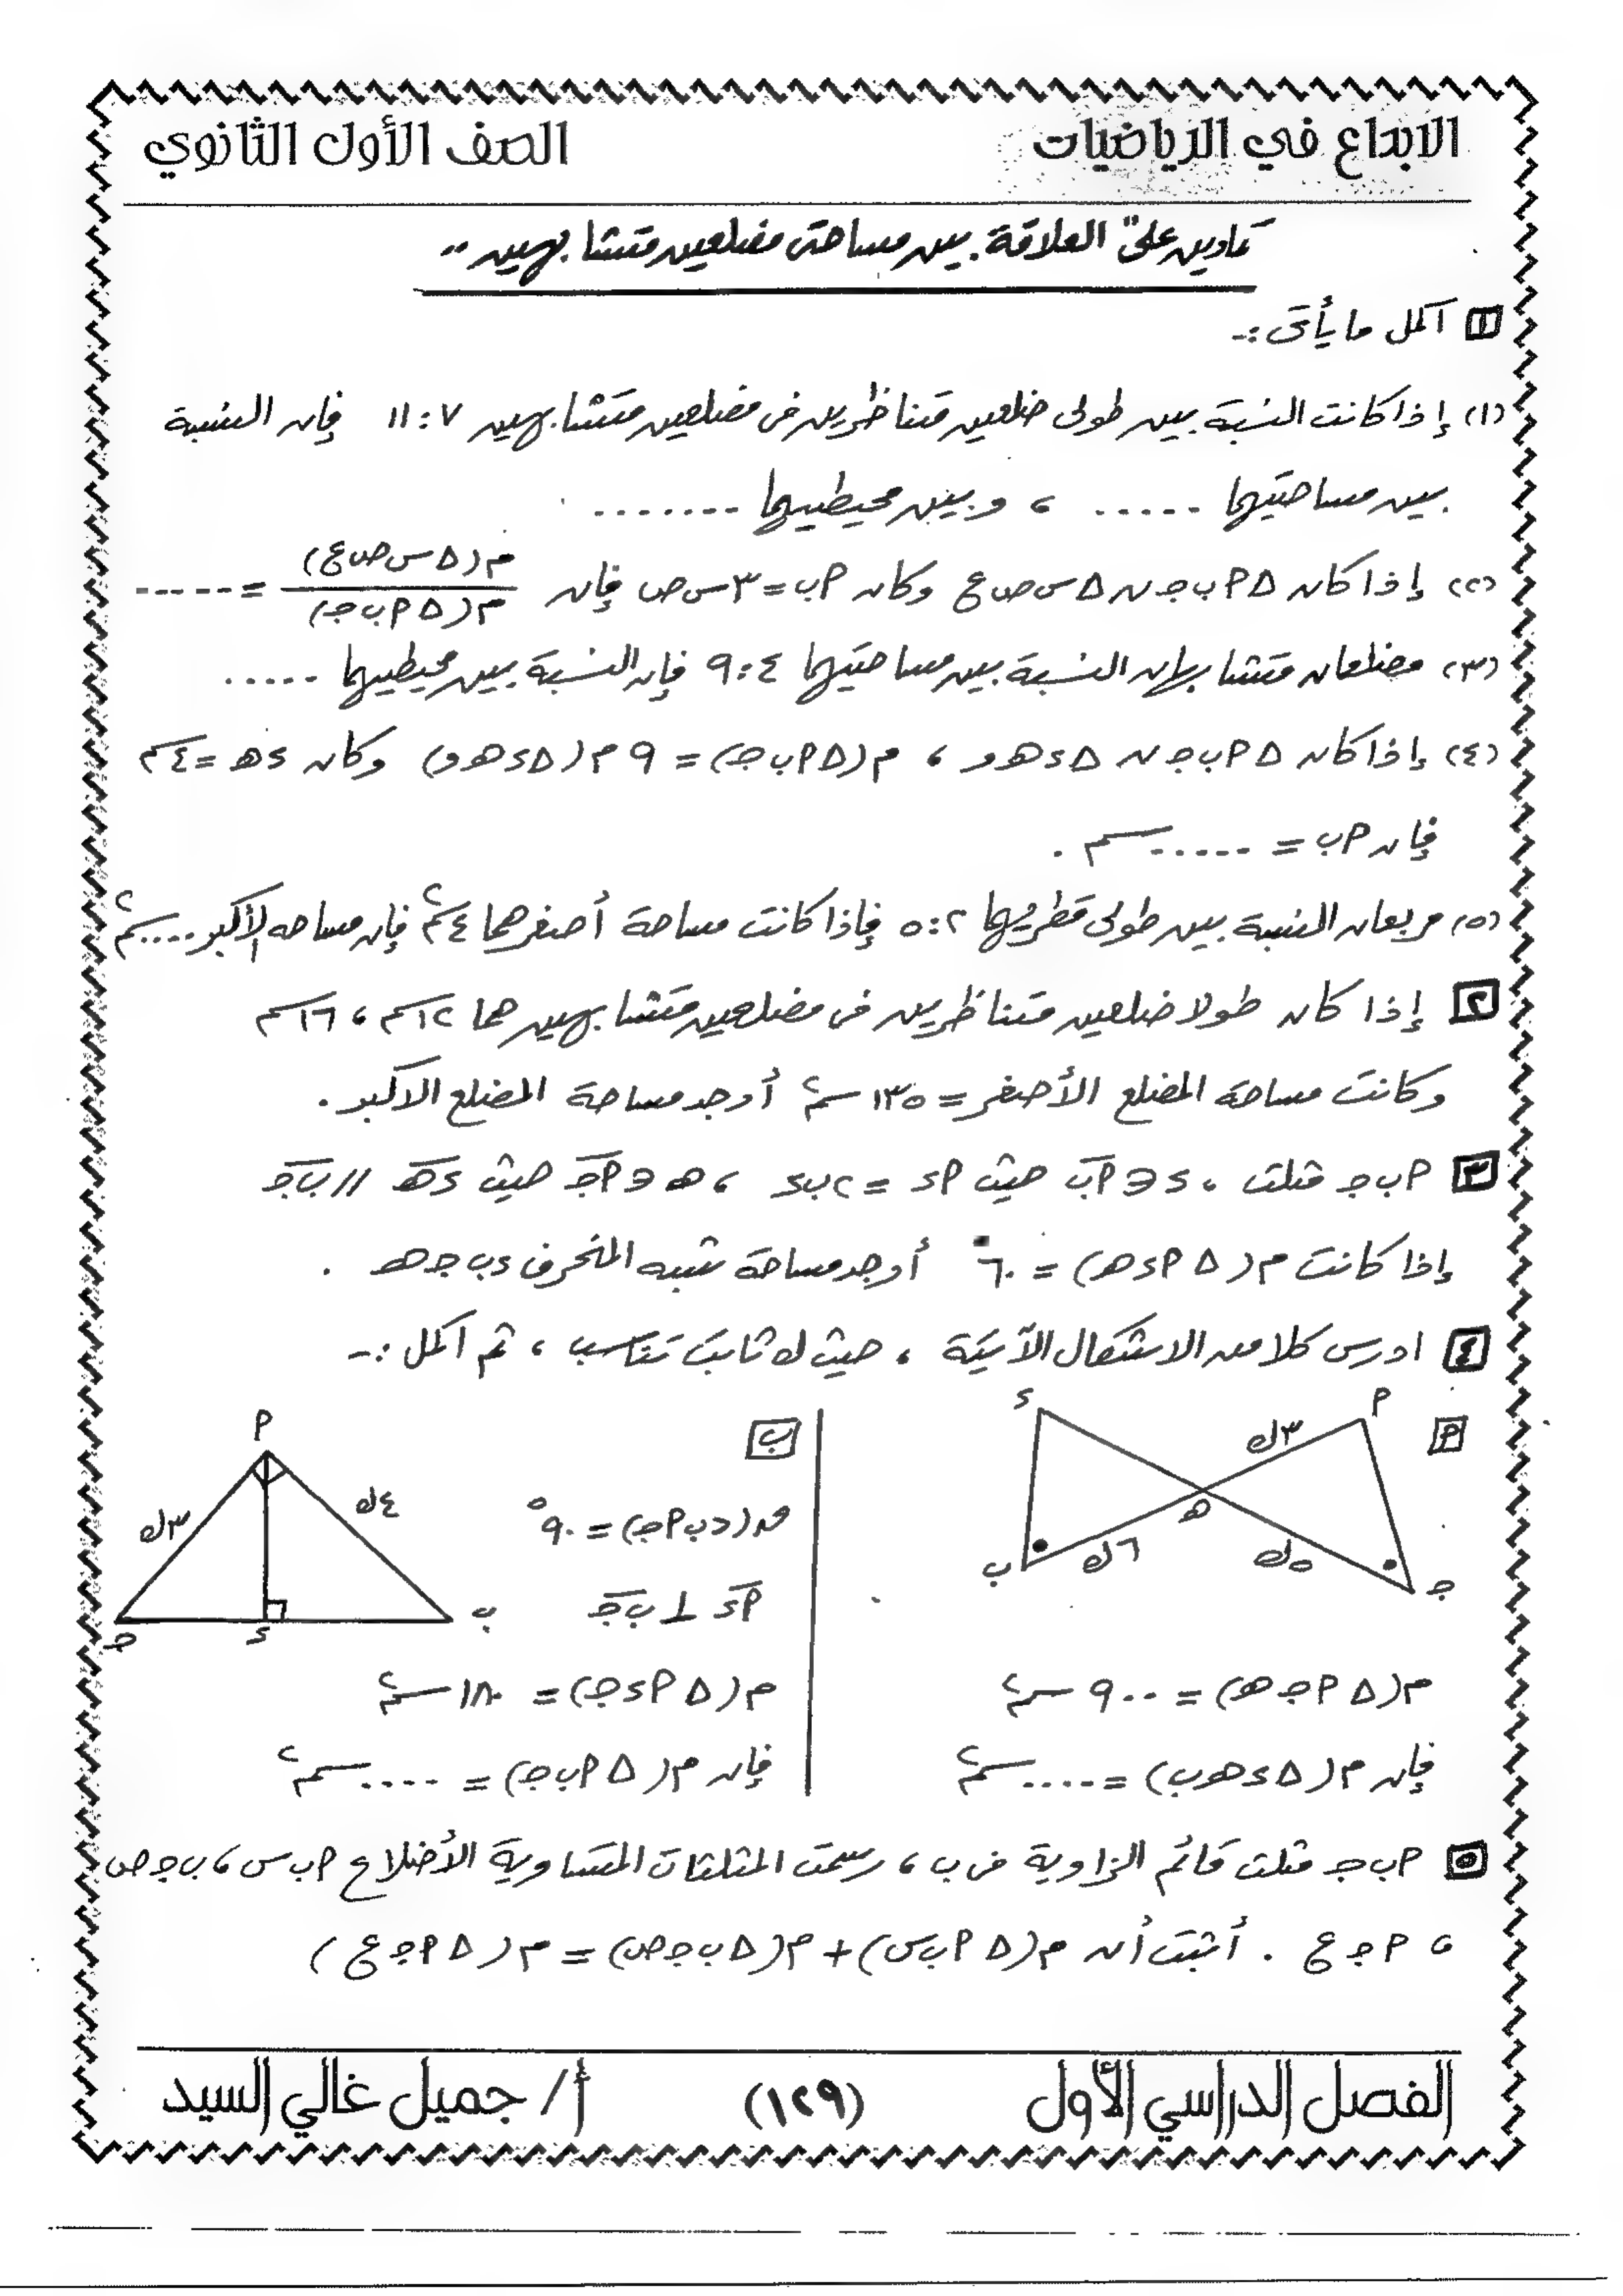 الابداع في الرياضيات
الصف الأول الثانوي
تمارين على " العلاقة بين مساحتى مضلعين متشابهين "
١ أكمل ما يأتى :-
(١) إذا كانت النسبة بين طولى ضلعين متناظرين فى مضلعين متشابهين ٧ : ١١ فإن النسبة
بين مساحتيهما ..... ، وبين محيطيهما .......
(٢) إذا كان Δ أ ب جـ ~ Δ س ص ع وكان أ ب = ٣ س ص فإن م (Δ س ص ع) / م (Δ أ ب جـ) = .....
(٣) مضلعان متشابهان النسبة بين مساحتيهما ٤ : ٩ فإن النسبة بين محيطيهما .....
(٤) إذا كان Δ أ ب جـ ~ Δ د هـ و ، م (Δ أ ب جـ) = ٩ م (Δ د هـ و) وكان د هـ = ٤ سم
فإن أ ب = ..... سم .
(٥) مربعان النسبة بين طولى قطريهما ٢ : ٥ فإذا كانت مساحة أصغرهما ٤ سم٢ فإن مساحه الأكبر .... سم٢
٢ إذا كان طولا ضلعين متناظرين فى مضلعين متشابهين هما ١٢ سم ، ١٦ سم
وكانت مساحة المضلع الأصغر = ١٣٥ سم٢ أوجد مساحة المضلع الاكبر .
٣ أ ب جـ مثلث ، د ∈ أ ب حيث أ د = ٢ ب د ، هـ ∈ أ جـ حيث د هـ // ب جـ
إذا كانت م (Δ أ د هـ) = ٦٠ أوجد مساحة شبه المنحرف د ب جـ هـ .
٤ ادرس كلا من الاشكال الآتية ، حيث ك ثابت تناسب ، ثم اكمل :-
أ
أ
د
٣ك
هـ
٦ك
٥ك
ب
جـ
م (Δ أ جـ هـ) = ٩٠٠ سم٢
فإن م (Δ د هـ ب) = .... سم٢
ب
أ
٤ك
٣ك
ب
د
جـ
ق (د ب أ جـ) = ٩٠°
أ د ⊥ ب جـ
م (Δ أ د جـ) = ١٨٠ سم٢
فإن م (Δ أ ب جـ) = .... سم٢
٥ أ ب جـ مثلث قائم الزاوية فى ب ، رسمت المثلثات المتساوية الأضلاع أ ب س ، ب جـ ص
، أ جـ ع . أثبت أن م (Δ أ ب س) + م (Δ ب جـ ص) = م (Δ أ جـ ع)
الفصل الدراسي الأول
(١٢٩)
أ/ جميل غالي السيد